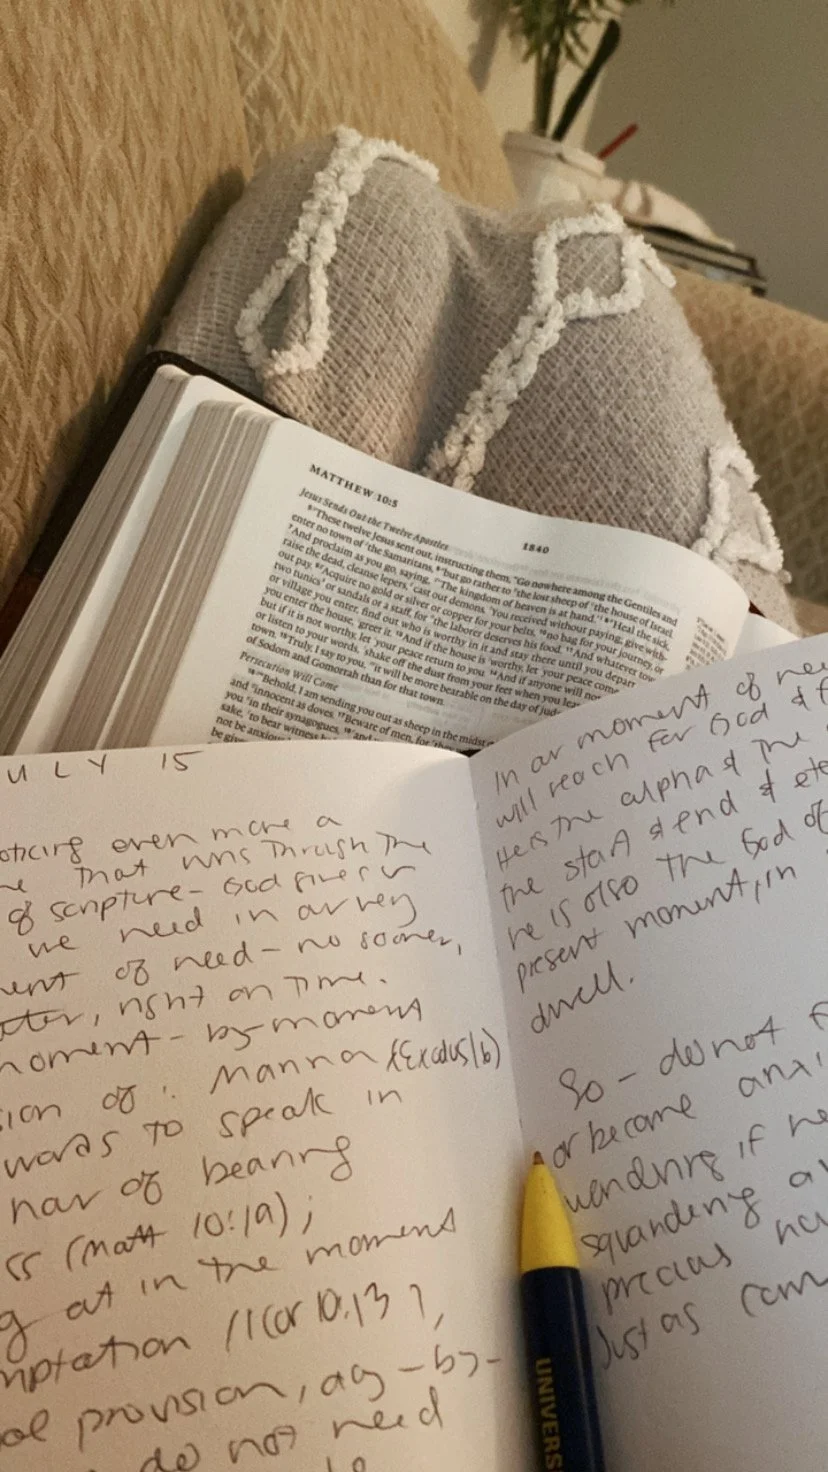 MATTHEW 10:5
1840
Jesus Sends Out the Twelve Apostles
"These twelve Jesus sent out, instructing them, "Go nowhere among the Gentiles and
enter no town of the Samaritans, but go rather to the lost sheep of the house of Israel.
And proclaim as you go, saying, 'The kingdom of heaven is at hand.' Heal the sick,
raise the dead, cleanse lepers, cast out demons. You received without paying; give with-
out pay. Acquire no gold or silver or copper for your belts, no bag for your journey, or
two tunics or sandals or a staff, for the laborer deserves his food. And whatever town
or village you enter, find out who is worthy in it and stay there until you depart.
you enter the house, greet it. And if the house is worthy, let your peace come
but if it is not worthy, let your peace return to you. And if anyone will not
or listen to your words, shake off the dust from your feet when you leave
town. Truly, I say to you, it will be more bearable on the day of
of Sodom and Gomorrah than for that town.
Persecution Will Come
"Behold, I am sending you out as sheep in the midst
and innocent as doves. Beware of men, for
you in their synagogues,
sake, to bear witness
not be anxious
ULY 15
even more a
that runs through the
of scripture - God gives us
we need in our very
of need - no sooner,
right on time.
moment-by-moment
of: Manna (Exodus 16)
words to speak in
of bearing
(Matt 10:19);
out in the moment
(1 Cor 10:13),
provision, day-by-
do not need
In our moment of
will reach for God &
He is the alpha & the
the start & end &
he is also the God of
present moment, in
dwell.
So - do not
or become
wondering if
squandering
precious
Just as
UNIVERS